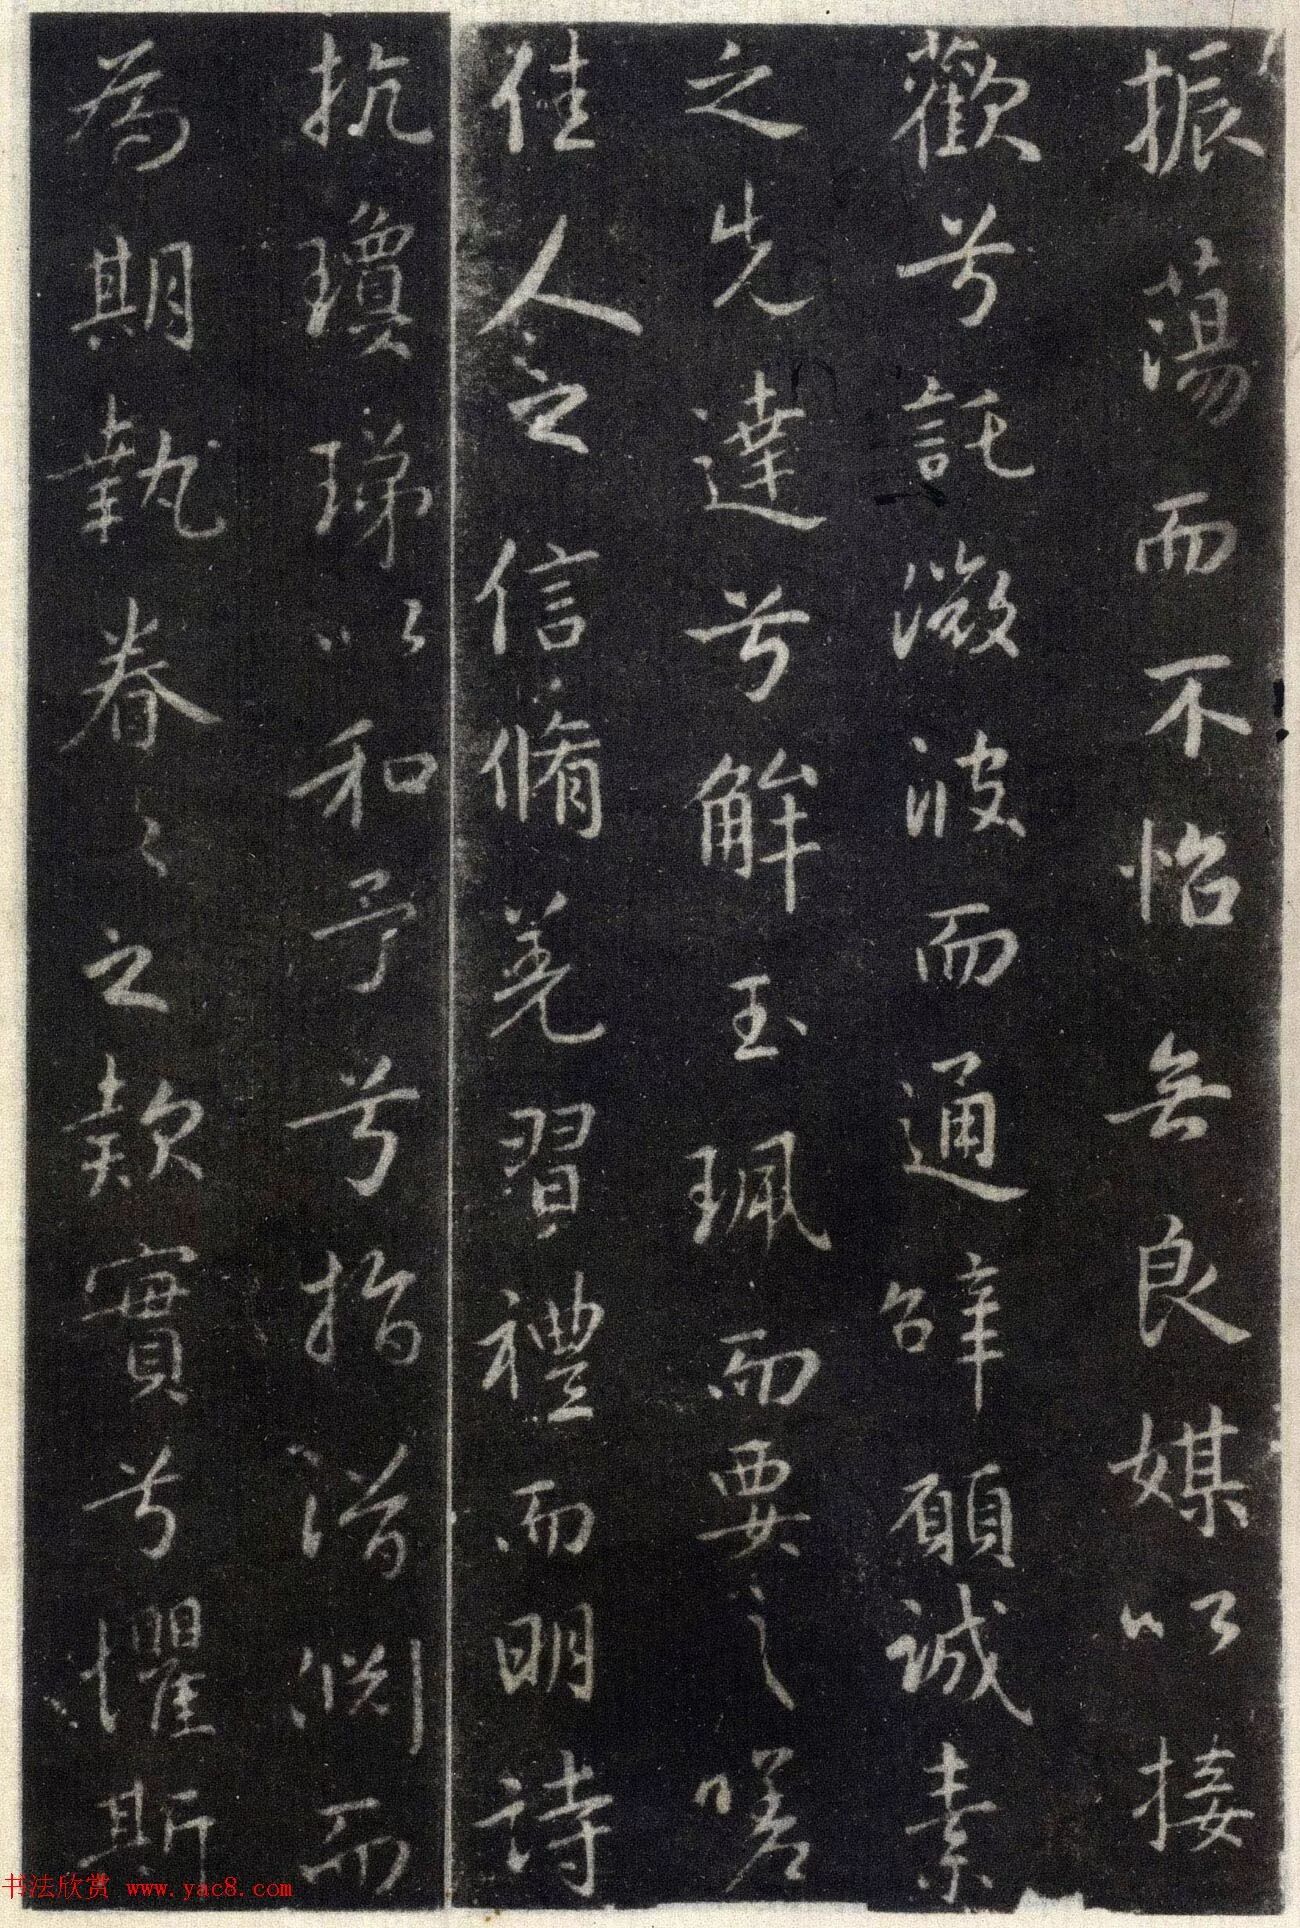 振蕩而不怡無良媒以接
歡兮託微波而通辭願誠素
之先達兮解玉珮而要之嗟
佳人之信脩羌習禮而明詩
抗瓊珶以和予兮指潛淵而
為期執眷〻之款實兮懼斯
书法欣赏 www.yac8.com